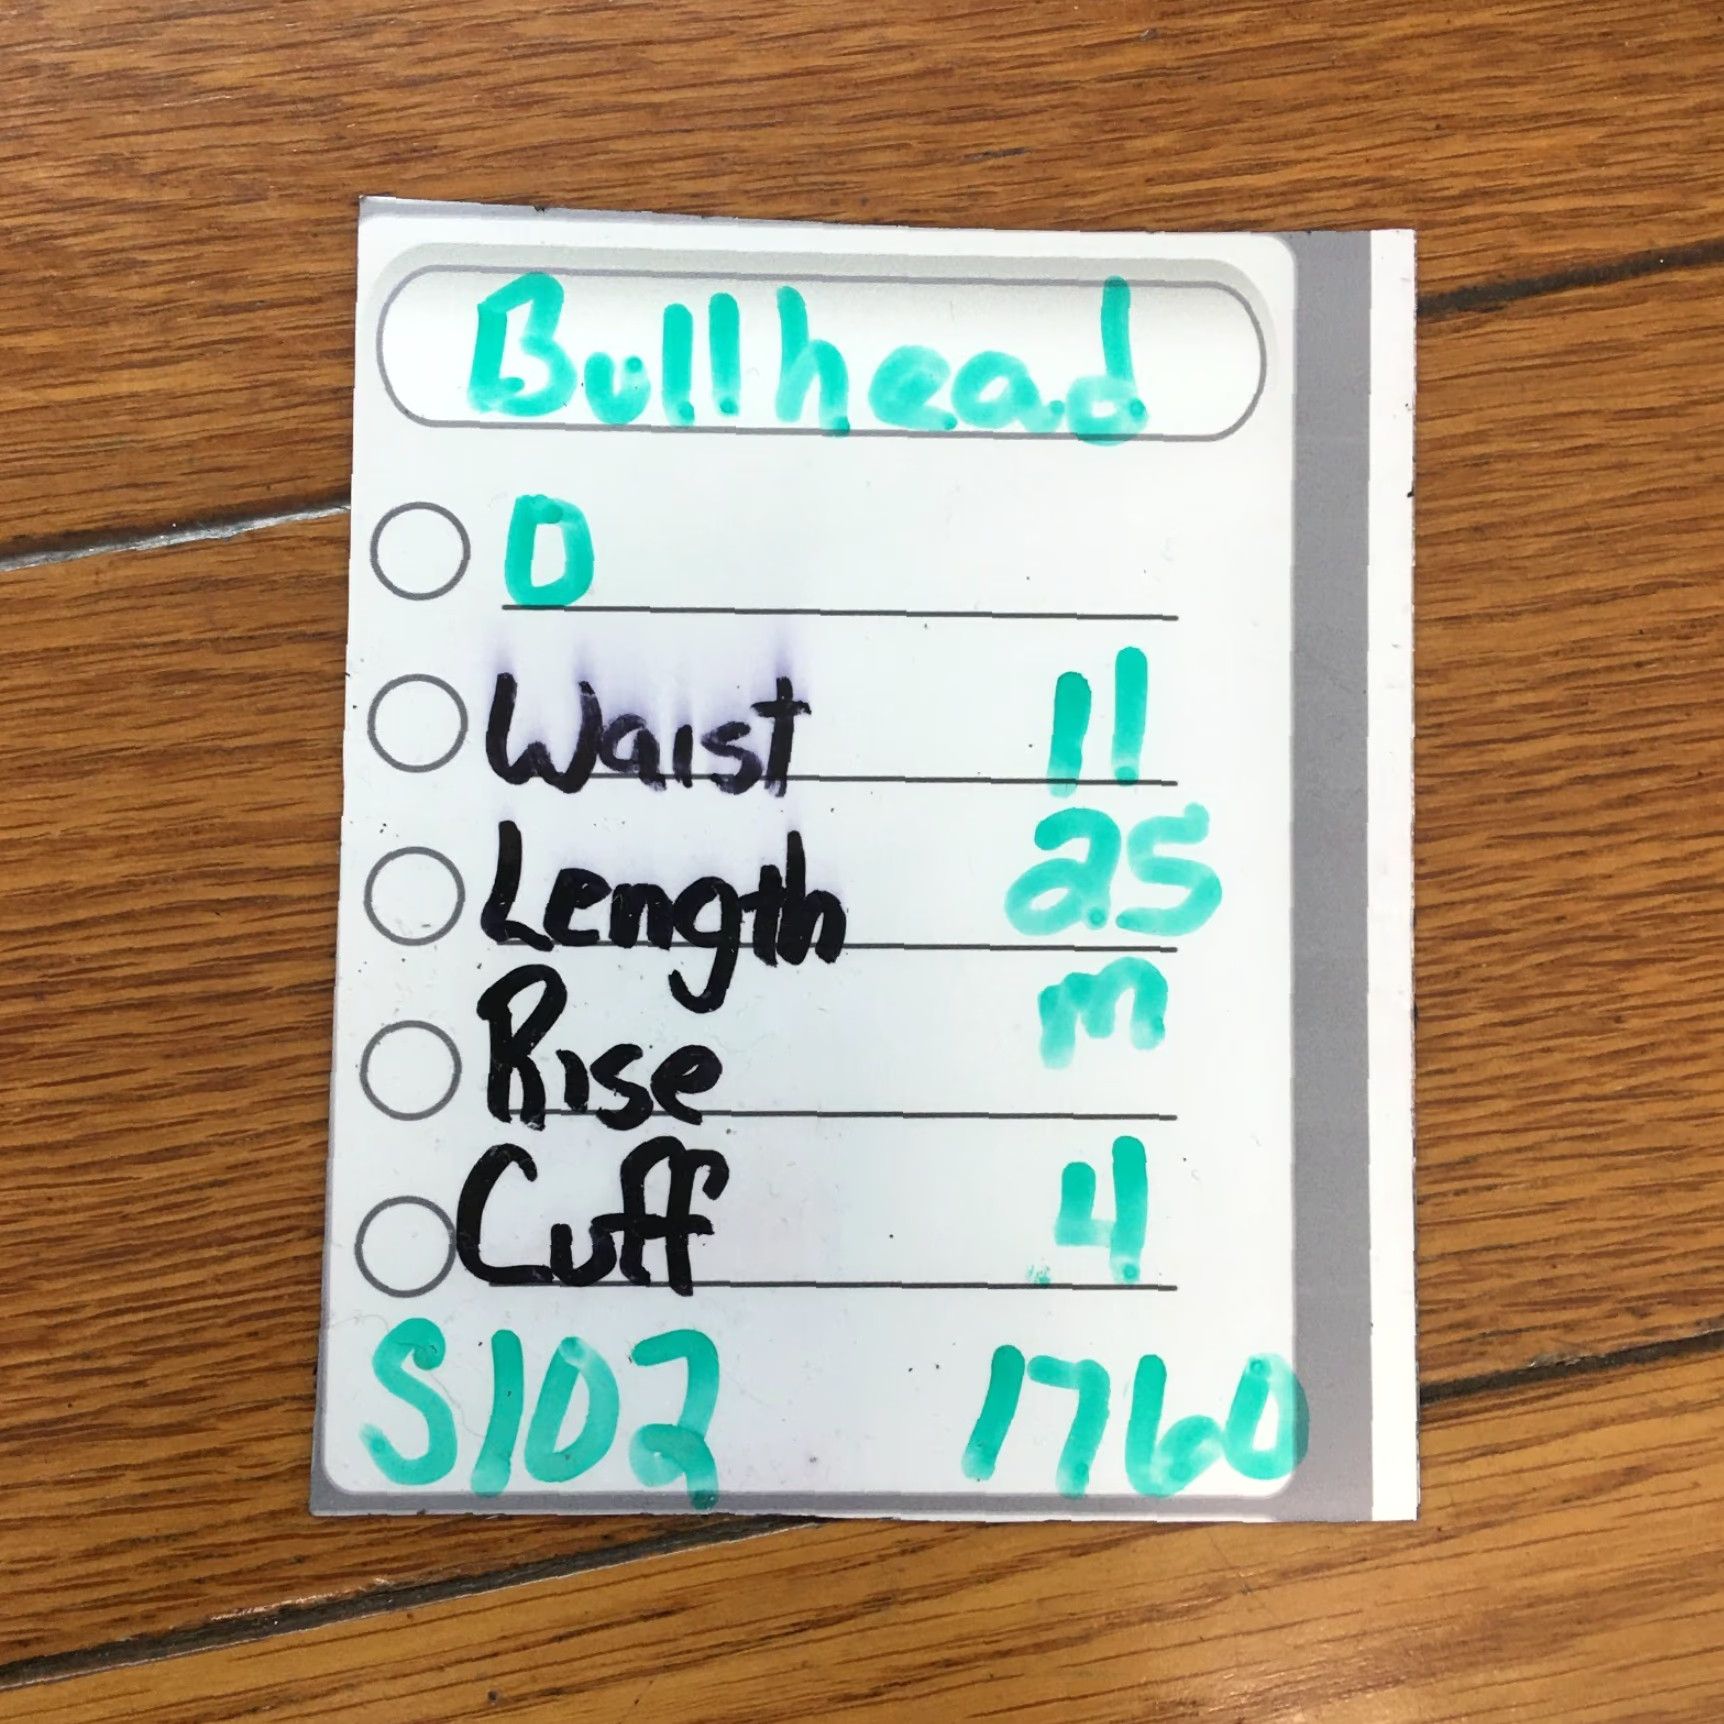 Bullhead
0
Waist 11
Length 25
Rise m
Cuff 4
S102 1760